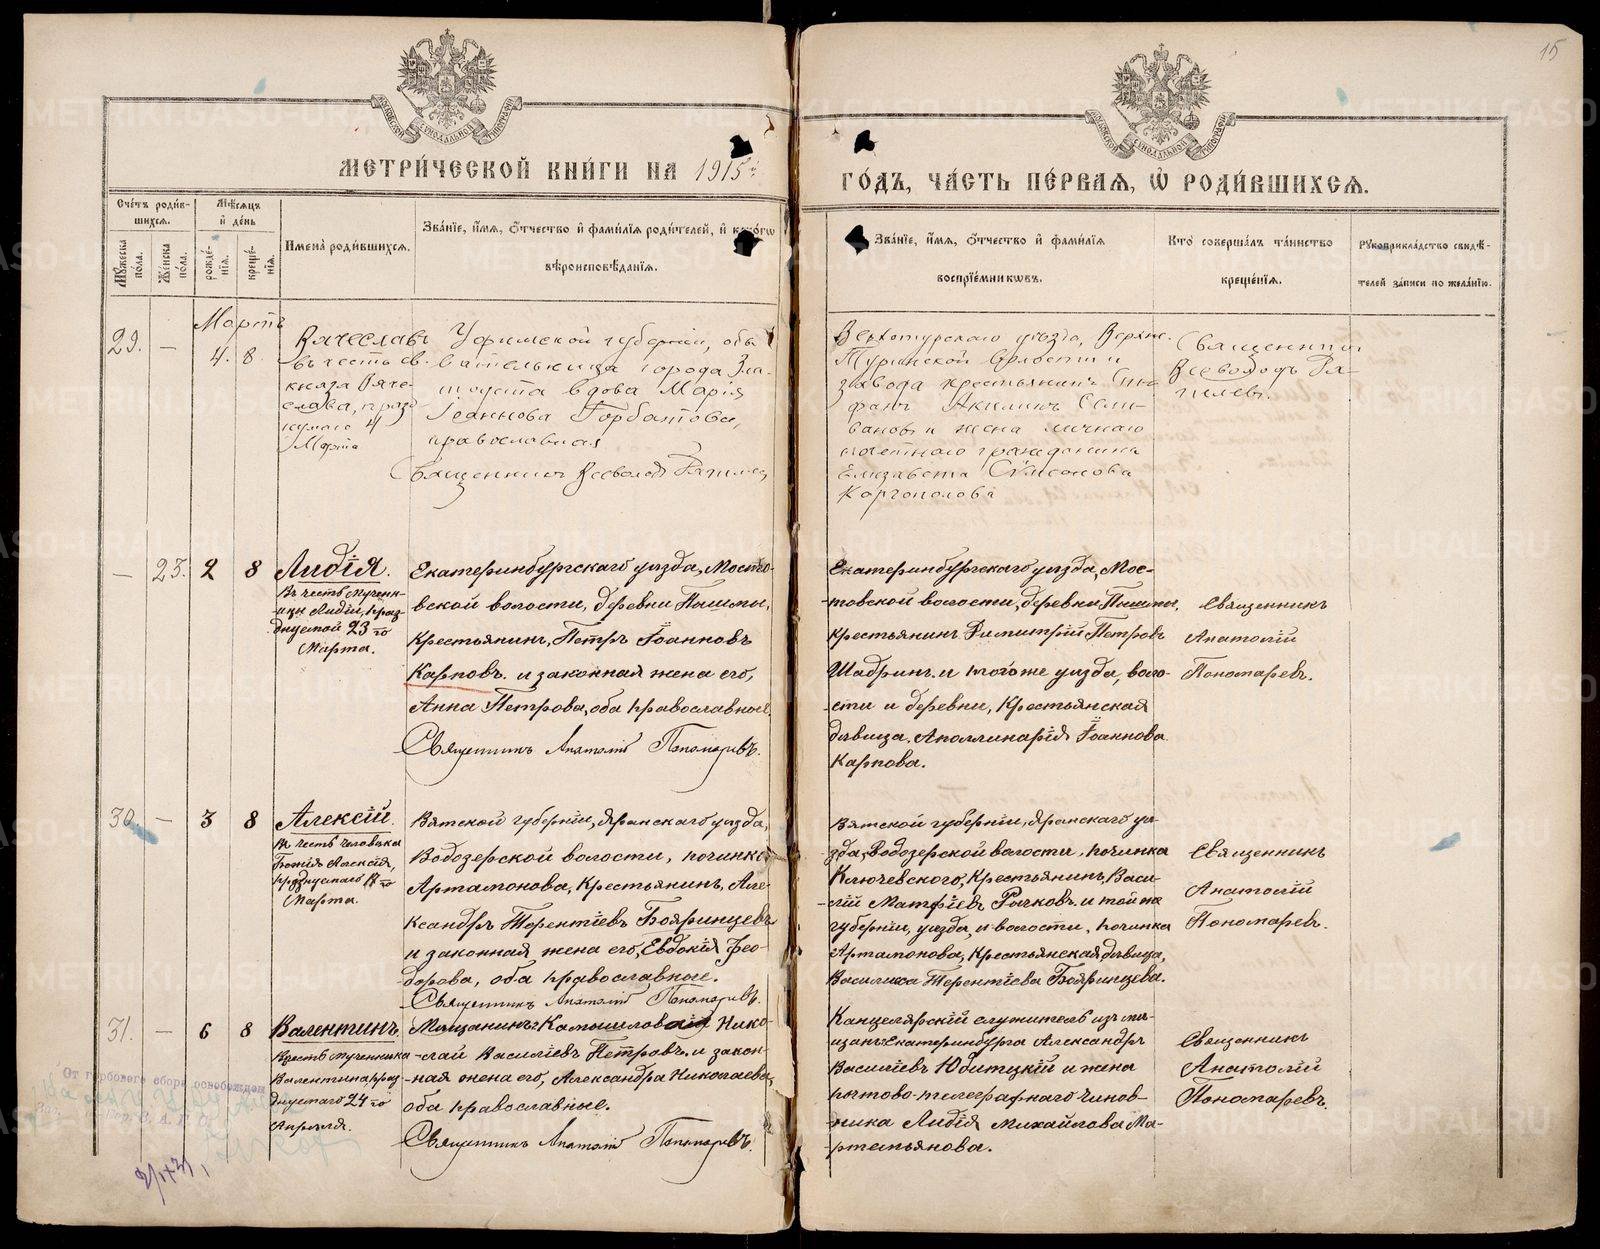 15
МОСКОВСКОЙ СѴНОДАЛЬНОЙ ТИПОГРАФІИ
МОСКОВСКОЙ СѴНОДАЛЬНОЙ ТИПОГРАФІИ
МЕТРИ́ЧЕСКОЙ КНИ́ГИ НА 1915й
ГО́ДЪ, ЧА́СТЬ ПЕ́РВАЯ, Ѡ҆ РОДИ́ВШИХСЯ.
Сче́тъ роди́в-
шихся.
Му́жеска по́ла.
Же́нска по́ла.
Мѣ́сяцъ
и҆ де́нь
рожде́-
нія.
креще́-
нія.
Имена̀ роди́вшихся.
Зва́ніе, и҆́мя, ѻ҆́тчество и҆ фами́лія роди́телей, и҆ како́гѡ
вѣроисповѣ́данія.
Зва́ніе, и҆́мя, ѻ҆́тчество и҆ фами́лія
воспріе́мникѡвъ.
Кто̀ соверша́лъ та́инство
креще́нія.
Рукоприкла́дство свидѣ́-
телей за́писи по жела́нію.
Мартъ
29.
—
4.
8.
Вячеславъ
въ честь св.
князя Вяче-
слава, празд
нуемаго 4
Марта
Уфимской губерніи, обы
вательница города Зла-
тоуста вдова Марія
Іоаннова Горбатова,
православная
Священникъ Всеволодъ
Верхотурскаго уѣзда, Верхне-
Туринской волости и
завода крестьянинъ
Акилинъ Сели-
вановъ и жена личнаго
почетнаго гражданина
Елизавета Сѵмеонова
Каргополова
Священникъ
Всеволодъ
—
23.
2
8
Лидія.
Въ честь мучени-
цы Лидіи, праз
днуемой 23го
Марта.
Екатеринбургскаго уѣзда, Мосто-
вской волости, деревни Пышмы,
Крестьянинъ, Петръ Іоанновъ
Карповъ. и законная жена его,
Анна Петрова, оба православные.
Священникъ Анатолій Пономаревъ.
Екатеринбургскаго уѣзда, Мос-
товской волости, деревни Пышмы,
Крестьянинъ Димитрій Петровъ
Шадринъ. и того же уѣзда, воло-
сти и деревни, Крестьянская
дѣвица. Аполлинарія Іоаннова
Карпова.
Священникъ
Анатолій
Пономаревъ.
30.
—
3
8
Алексій.
Въ честь человѣка
Божія Алексія,
празднуемаго 17го
Марта.
Вятской губерніи, Яранскаго уѣзда,
Водозерской волости, починка
Артамонова, Крестьянинъ, Але-
ксандръ Терентіевъ Бояринцевъ
и законная жена его, Евдокія Фео-
дорова, оба православные.
Священникъ Анатолій Пономаревъ.
Вятской губерніи, Яранскаго уѣ-
зда, Водозерской волости, починка
Ключевского, Крестьянинъ, Васи-
лій Матфіевъ Рычковъ. и той же
губерніи, уѣзда, и волости, починка
Артамонова, Крестьянская дѣвица,
Василиса Терентіева Бояринцева.
Священникъ
Анатолій
Пономаревъ.
31.
—
6
8
Валентинъ.
Въ честь мученика
Валентина, праз
днуемаго 24го
Апрѣля.
Мѣщанинъ г. Камышлова Нико-
лай Василіевъ Петровъ. и закон-
ная жена его, Александра Николаева,
оба православные.
Священникъ Анатолій Пономаревъ.
Канцелярскій служитель изъ мѣ-
щанъ г. Екатеринбурга Александръ
Василіевъ Юбитцкій и жена
почтово-телеграфнаго чинов-
ника Лидія Михайлова Ма-
ртемьянова.
Священникъ
Анатолій
Пономаревъ.
От гербового сбора освобожден
METRIKI.GASO-URAL.RU